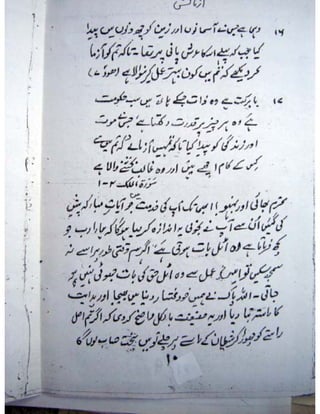 آزمائش
۱۶ وہی ہے جس نے آسمانوں اور زمین کو چھ دنوں میں پیدا
کیا جبکہ پہلے اسکا عرش پانی پر تھا تاکہ تم کو آزما
کر دیکھے کہ تم میں کون بہتر عمل کرنیوالا ہے (ھود ۷)
۱۷ بابرکت ہے وہ ذات جسکے ہاتھ میں سب حکومت
ہے اور وہ ہر چیز پر قدرت رکھتا ہے جس نے موت
اور زندگی کو پیدا کیا تاکہ تمہیں آزمائے کہ تم میں سے
کس کے کام اچھے ہیں اور وہ غالب بخشنے والا ہے
سورۃ الملک ۱-۲
محترم بھائی اور بہنو! یہاں تک آپ کی خدمت میں جو آیات مبارکہ پیش
کی گئیں ان سے آپ نے بخوبی یہ اندازہ کر لیا ہوگا کہ ہمارا رب جو
کچھ فرماتا ہے وہ اٹل بات ہوتی ہے اگر ہم وقتی طور پر اسے نہ
سمجھ سکیں تو ہمارے عمل سے وہ اٹل حق کی بات جھوٹی نہیں ہو
جاتی۔ اللہ پاک نے ہمیں خود مختار دنیا میں بھیجا اور ہدایت
کا راستہ بتا دیا اور یہ حقیقت بالکل واضح کر دی کہ اگر تم اصل
راستے کو چھوڑ کر شیطان کے راستے پر چلے تو میں سخت حساب لوں گا
۱۰